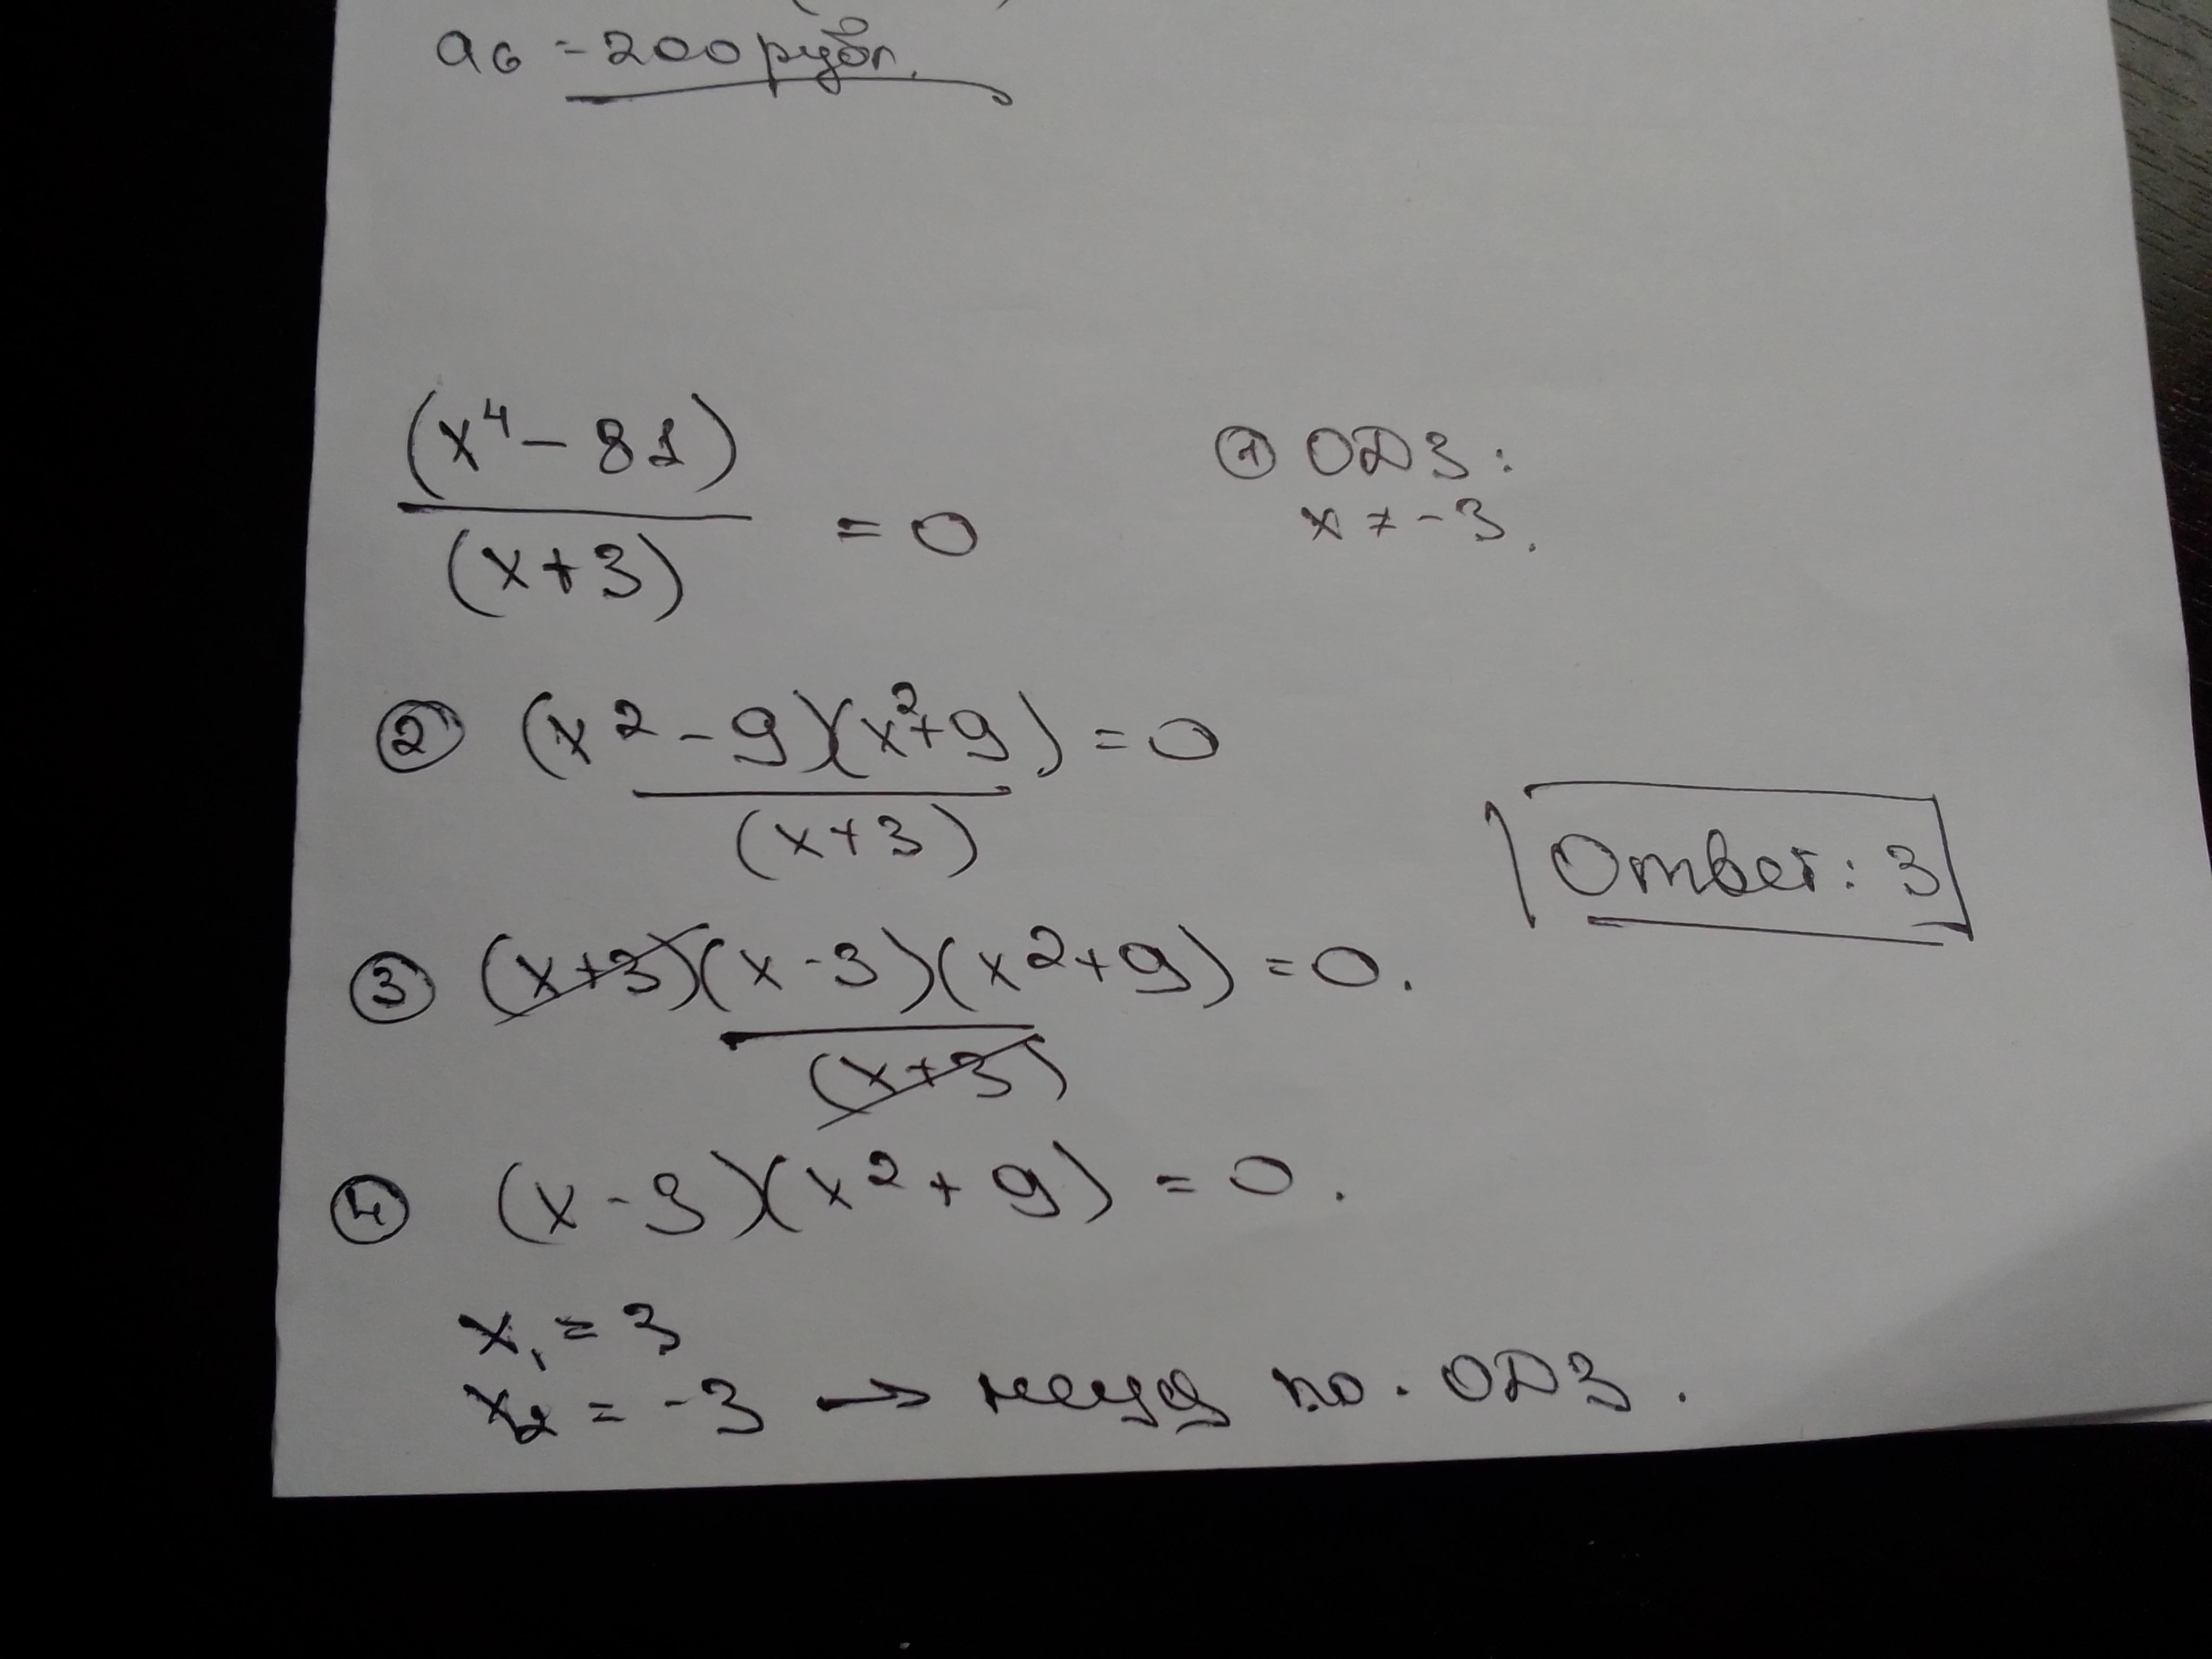 a6 = 200 рубл.
(x⁴ - 81)
(x+3)
= 0
① ОДЗ:
x ≠ -3.
② (x² - 9)(x²+9) = 0
(x+3)
Ответ: 3
③ (x+3)(x-3)(x²+9) = 0.
(x+3)
④ (x-3)(x²+9) = 0.
x₁ = 3
x₂ = -3 → неуд по. ОДЗ.